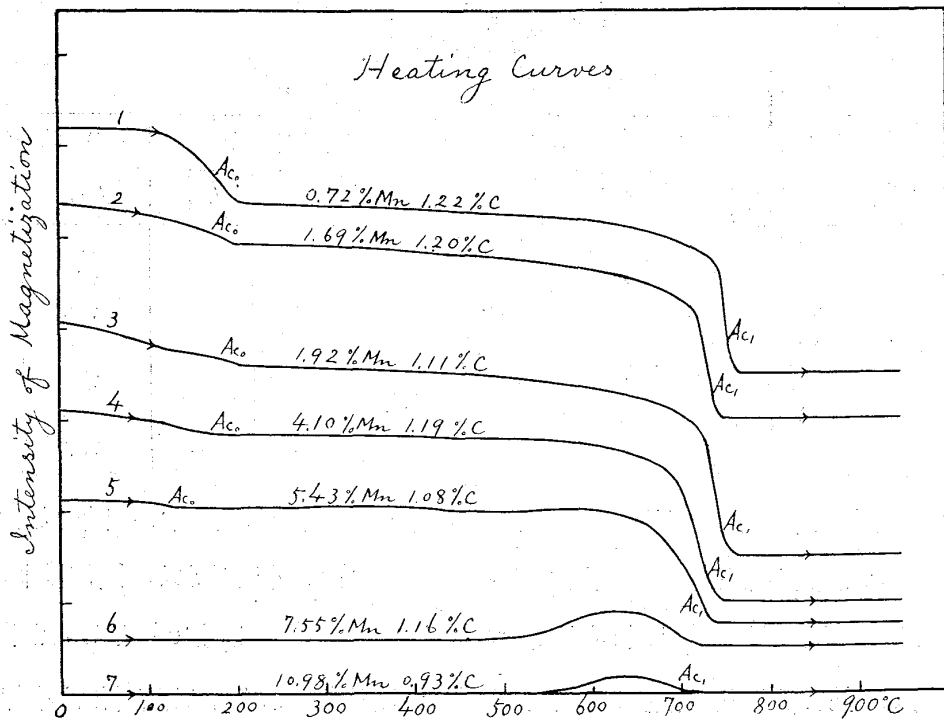 Heating Curves
Intensity of Magnetization
1
Ac₀
0.72%Mn 1.22%C
2
Ac₀
1.69%Mn 1.20%C
Ac₁
3
Ac₀
1.92%Mn 1.11%C
Ac₁
4
Ac₀
4.10%Mn 1.19%C
5
Ac₀
5.43%Mn 1.08%C
Ac₁
Ac₁
Ac₁
6
7.55%Mn 1.16%C
7
10.98%Mn 0.93%C
Ac₁
0 100 200 300 400 500 600 700 800 900°C